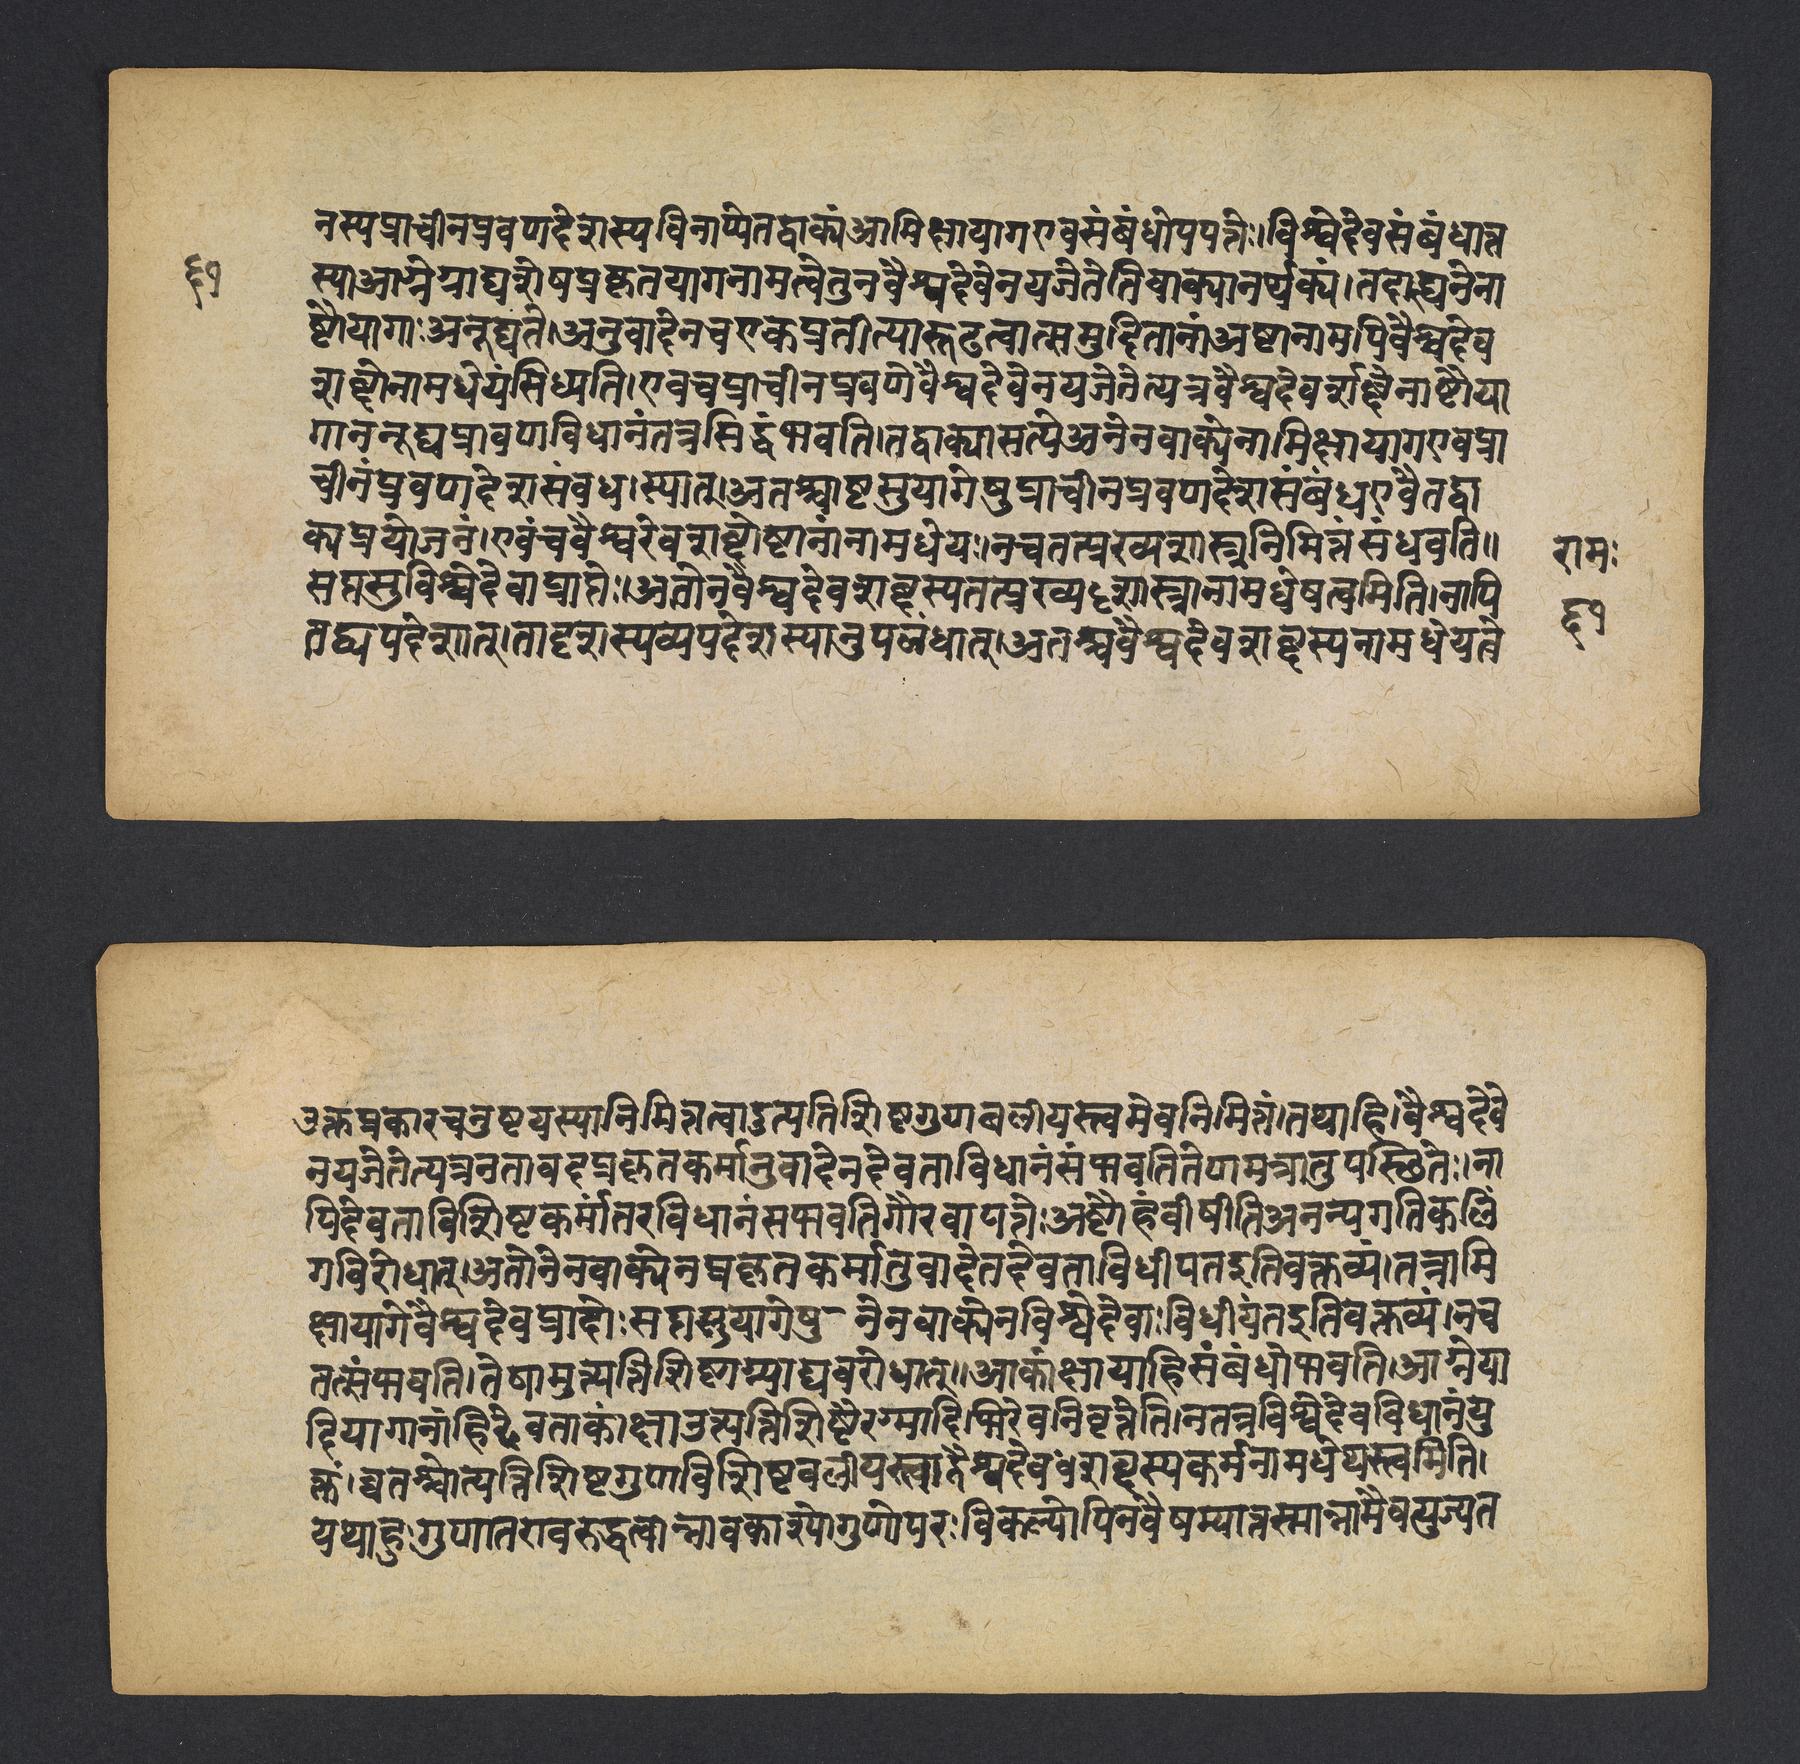 नस्यप्राचीनप्रवणदेशस्यविनाप्येतद्वाक्यंआमिक्षायागएवसंबंधोपपत्तेः।विश्वेदेवसंबंधात्त
६१
स्याआग्नेयाद्यशेषप्रकृतयागनामत्वेतुनवैश्वदेवेनयजेतेतिवाक्यानर्थक्यं।तदाह्यनेना
ष्टौयागाःअनूद्यंते।अनुवादेनचएकप्रतीत्यारूढत्वात्समुदितानांअष्टानामपिवैश्वदेव
शब्दोनामधेयंसिध्यति।एवंचप्राचीनप्रवणेवैश्वदेवेनयजेतेत्यत्रवैश्वदेवर्शब्देनाष्टौया
गाननूद्यप्रावणविधानंतत्रसिद्धंभवति।तद्वाक्यासत्येअनेनवाक्येनामिक्षायागएवप्रा
चीनंप्रवणदेशसंबध।स्यात्।अतश्चाष्टसुयागेषुप्राचीनप्रवणदेशसंबंधएवैतद्वा
क्यप्रयोजनं।एवंचवैश्वरेवशब्दोष्टानांनामधेयः।नचतत्प्रख्यशास्त्रनिमित्तंसंधवति॥
रामः
सप्तसुविश्वेदेवाप्राप्तेः।अतोनवैश्वदेवशब्दस्यतत्प्रख्यदृशास्त्रानामधेषत्वमिति।नापि
६१
तद्व्यपदेशात्।तादृशस्यव्यपदेशस्यानुपलंधात्।अतश्चवैश्वदेवशब्दस्यनामधेयत्वे
उक्तप्रकारचतुष्टयस्यानिमित्तत्वादुत्पतिशिष्टगुणबलीयस्त्वमेवनिमित्तं।तथाहि।वैश्वदेवे
नयजेतेत्यत्रनतावदप्रकृतकर्मानुवादेनदेवताविधानंसंभवतितेपामत्रातुपस्छितेः।ना
पिदेवताविशिष्टकर्मांतरविधानंसभवतिगौरवापत्तेःअष्टौहंवीषीतिअनन्यगतिकलिं
गविरोधात्।अतोनेनवाक्येनप्रकृतकर्मातुवादेतदेवताविधीपतइतिवक्तव्यं।तत्रामि
क्षायागेवैश्वदेवप्राप्तेःसप्तसुयागेषु-नेनवाक्येनविश्वेदेवाःविधीयंतइतिवक्तव्यं।नच
तत्संभवति।तेषामुत्पत्तिशिष्टाग्न्याद्यवरोधात्॥आकांक्षायाहिसंबंधोभवति।आग्नेया
दियागानांहिदेवताकांक्षाउत्पत्तिशिष्टैरग्न्यादिभिरेवनिवृत्तेति।नतत्रविश्वेदेवविधानंयु
क्तं।अतश्चोत्पत्तिशिष्टगुणविशिष्टबलीयस्त्वाद्वैश्वदेवंशब्दस्यकर्मनामधेयत्वमिति।
यथाहुःगुणांतरावरुद्धत्वान्नावकाश्योगुणोपरःविकल्पोपिनवैषम्यात्तस्मान्नामैवयुज्यत